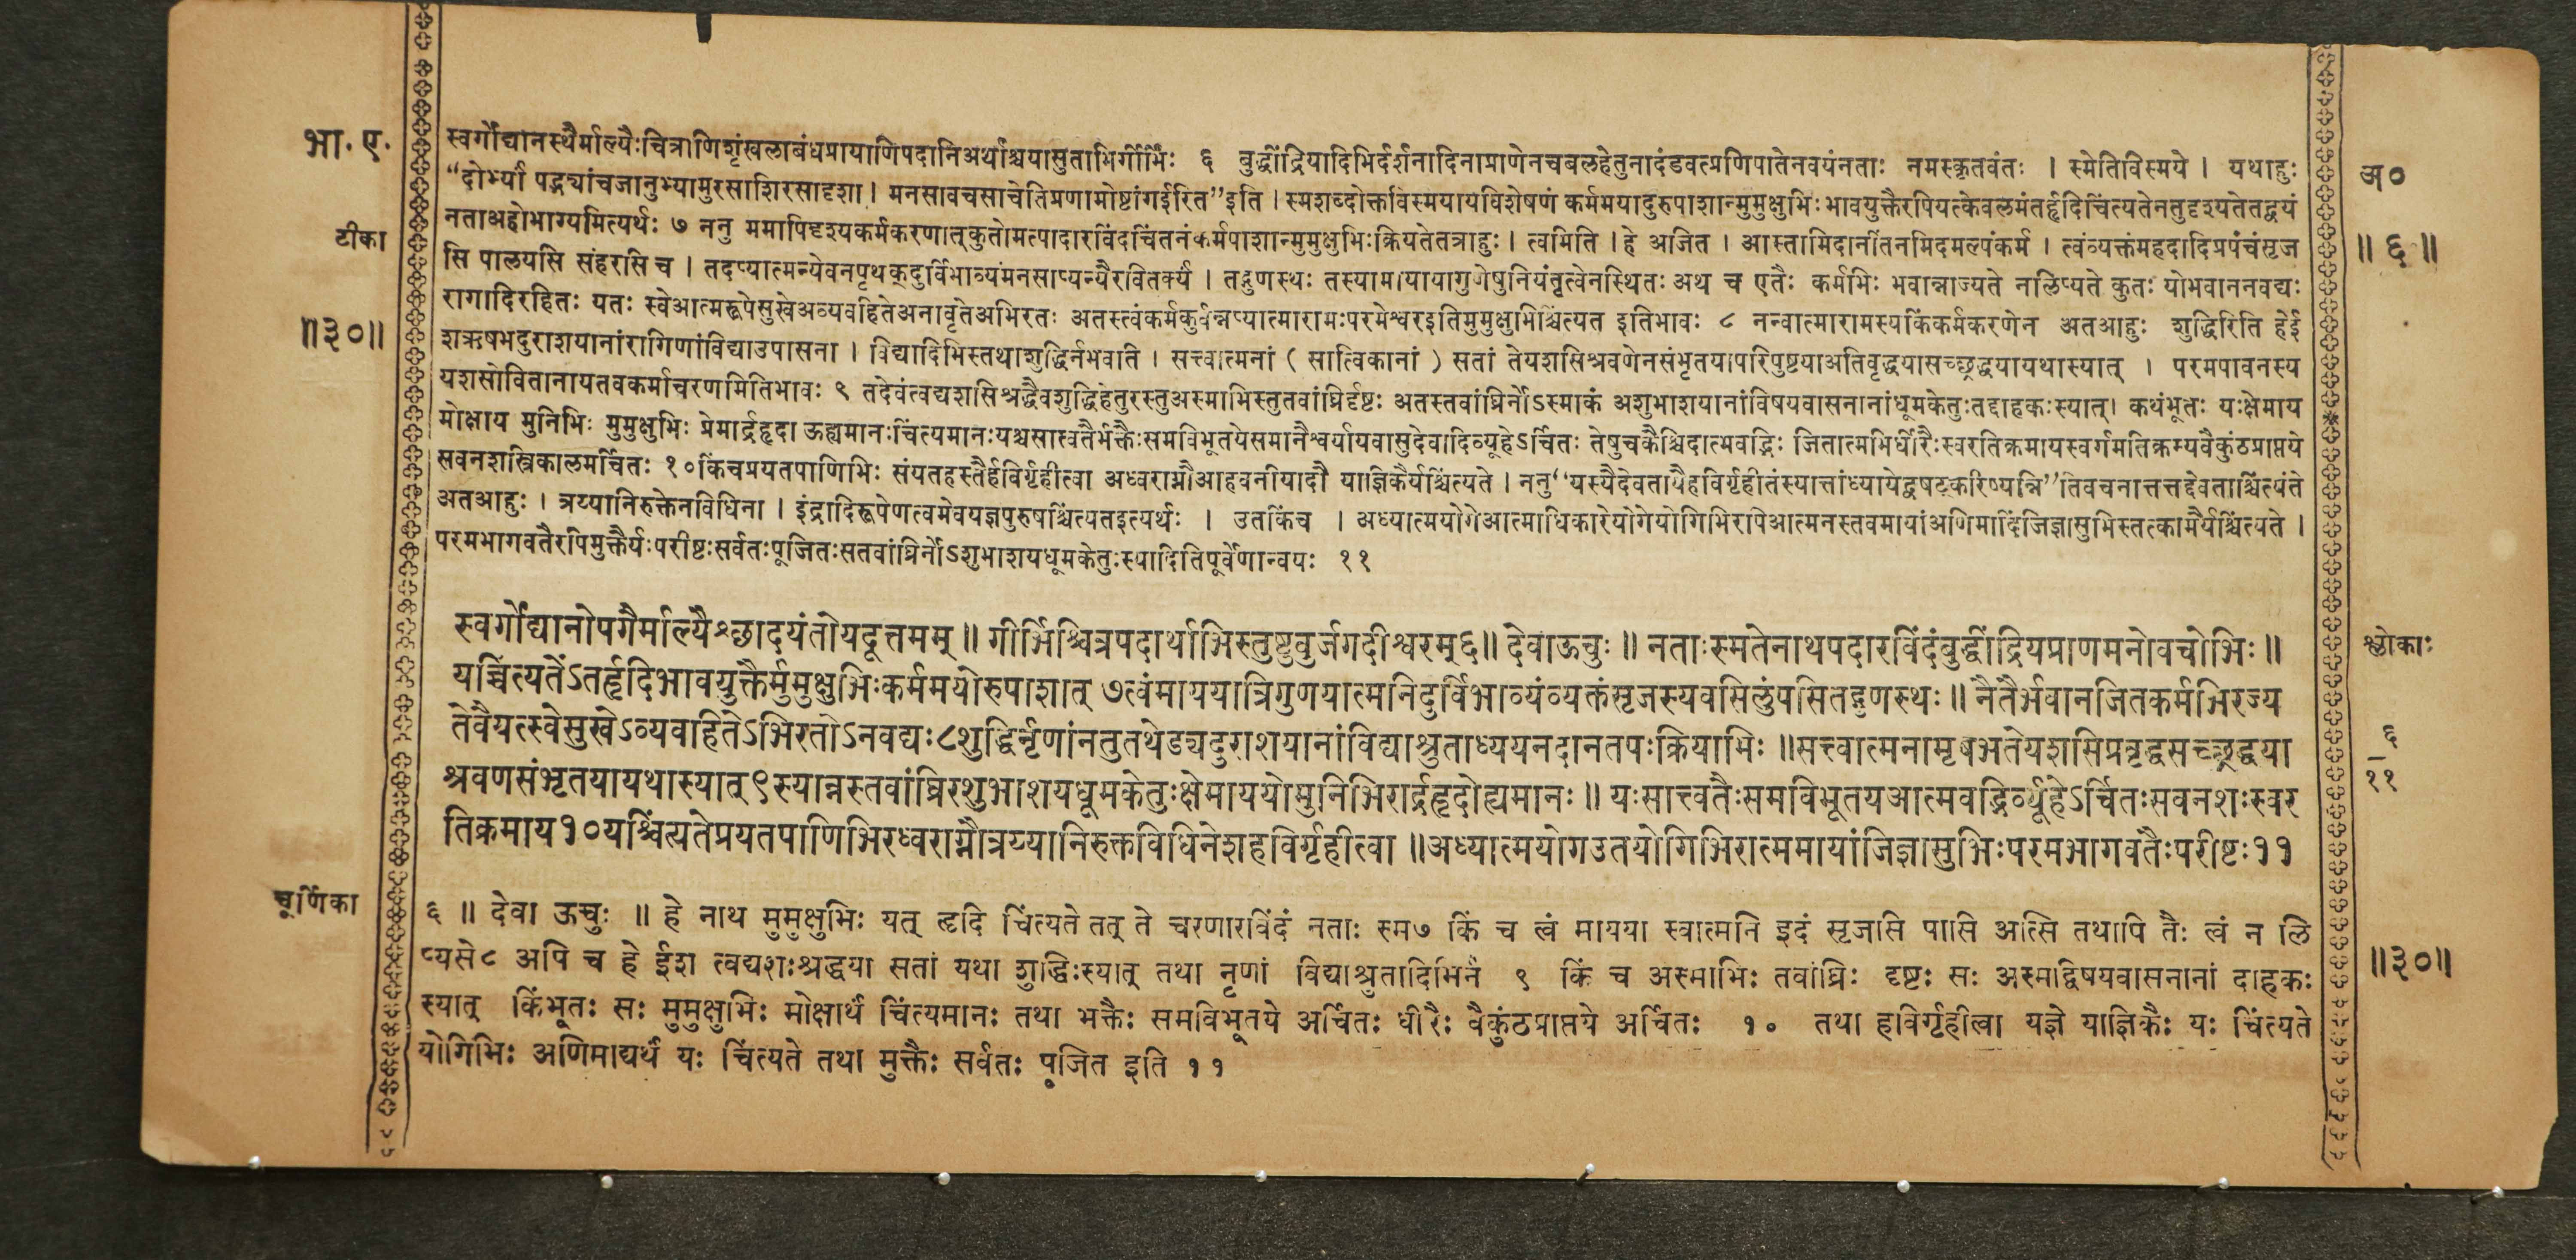 भा. ए.
स्वर्गोद्यानस्थैर्माल्यैःचित्राणिशृंखलाबंधप्रायाणिपदानिअर्थाश्चयासुताभिर्गीर्भिः ६ बुद्धींद्रियादिभिर्दर्शनादिनाप्राणेनचबलहेतुनादंडवत्प्रणिपातेनवयंनताः नमस्कृतवंतः । स्मेतिविस्मये । यथाहुः
अ०
“दोर्भ्यां पद्भ्यांचजानुभ्यामुरसाशिरसादृशा । मनसावचसाचेतिप्रणामोष्टांगईरित”इति । स्मशब्दोक्तविस्मयायविशेषणं कर्ममयादुरुपाशान्मुमुक्षुभिः भावयुक्तैरपियत्केवलमंतर्हृदिचिंत्यतेनतुदृश्यतेतद्वयं
नताअहोभाग्यमित्यर्थः ७ ननु ममापिदृश्यकर्मकरणात्कुतोमत्पादारविंदचिंतनंकर्मपाशान्मुमुक्षुभिःक्रियतेतत्राहुः । त्वमिति । हे अजित । आस्तामिदानींतनमिदमल्पंकर्म । त्वंव्यक्तंमहदादिप्रपंचंसृज
टीका
॥ ६ ॥
सि पालयसि संहरसि च । तदप्यात्मन्येवनपृथक्दुर्विभाव्यंमनसाप्यन्यैरवितर्क्यं । तद्गुणस्थः तस्यामायायागुणेषुनियंतृत्वेनस्थितः अथ च एतैः कर्मभिः भवान्नाज्यते नलिप्यते कुतः योभवाननवद्यः
रागादिरहितः यतः स्वेआत्मरूपेसुखेअव्यवहितेअनावृतेअभिरतः अतस्त्वंकर्मकुर्वन्नप्यात्मारामःपरमेश्वरइतिमुमुक्षुभिश्चिंत्यत इतिभावः ८ नन्वात्मारामस्यकिंकर्मकरणेन अतआहुः शुद्धिरिति हेई
॥३०॥
शऋषभदुराशयानांरागिणांविद्याउपासना । विद्यादिभिस्तथाशुद्धिर्नभवति । सत्त्वात्मनां ( सात्विकानां ) सतां तेयशसिश्रवणेनसंभृतयापरिपुष्टयाअतिवृद्धयासच्छ्रद्धयायथास्यात् । परमपावनस्य
यशसोवितानायतवकर्माचरणमितिभावः ९ तदेवंत्वद्यशसिश्रद्धैवशुद्धिहेतुरस्तुअस्माभिस्तुतवांघ्रिर्दृष्टः अतस्तवांघ्रिर्नोऽस्माकं अशुभाशयानांविषयवासनानांधूमकेतुःतद्दाहकःस्यात्। कथंभूतः यःक्षेमाय
मोक्षाय मुनिभिः मुमुक्षुभिः प्रेमार्द्रहृदा ऊह्यमानःचिंत्यमानःयश्चसात्वतैर्भक्तैःसमविभूतयेसमानैश्वर्यायवासुदेवादिव्यूहेऽर्चितः तेषुचकैश्चिदात्मवद्भिः जितात्मभिर्धीरैःस्वरतिक्रमायस्वर्गमतिक्रम्यवैकुंठप्राप्तये
सवनशस्त्रिकालमर्चितः १०किंचप्रयतपाणिभिः संयतहस्तैर्हविर्गृहीत्वा अध्वराग्नौआहवनीयादौ याज्ञिकैर्यश्चिंत्यते । ननु“यस्यैदेवतायैहविर्गृहीतंस्यात्तांध्यायेद्वषट्करिष्यन्नि”तिवचनात्तत्तद्देवताश्चिंत्यंते
अतआहुः । त्रय्यानिरुक्तेनविधिना । इंद्रादिरूपेणत्वमेवयज्ञपुरुषश्चिंत्यतइत्यर्थः । उतकिंच । अध्यात्मयोगेआत्माधिकारेयोगेयोगिभिरपिआत्मनस्तवमायांअणिमादिंजिज्ञासुभिस्तत्कामैर्यश्चिंत्यते ।
परमभागवतैरपिमुक्तैर्यःपरीष्टःसर्वतःपूजितःसतवांघ्रिर्नोऽशुभाशयधूमकेतुःस्यादितिपूर्वेणान्वयः ११
स्वर्गोद्यानोपगैर्माल्यैश्छादयंतोयदूत्तमम् ॥ गीर्भिश्चित्रपदार्थाभिस्तुष्टुवुर्जगदीश्वरम्६॥ देवाऊचुः ॥ नताःस्मतेनाथपदारविंदंबुद्धींद्रियप्राणमनोवचोभिः ॥
श्लोकाः
यच्चिंत्यतेंऽतर्हृदिभावयुक्तैर्मुमुक्षुभिःकर्ममयोरुपाशात् ७त्वंमाययात्रिगुणयात्मनिदुर्विभाव्यंव्यक्तंसृजस्यवसिलुंपसितद्गुणस्थः ॥ नैतैर्भवानजितकर्मभिरज्य
तेवैयत्स्वेसुखेऽव्यवहितेऽभिरतोऽनवद्यः८शुद्धिर्नृणांनतुतथेड्यदुराशयानांविद्याश्रुताध्ययनदानतपःक्रियाभिः ॥सत्त्वात्मनामृषभतेयशसिप्रवृद्धसच्छ्रद्धया
६
११
श्रवणसंभृतयायथास्यात्९स्यान्नस्तवांघ्रिरशुभाशयधूमकेतुःक्षेमाययोमुनिभिरार्द्रहृदोह्यमानः ॥ यःसात्त्वतैःसमविभूतयआत्मवद्भिर्व्यूहेऽर्चितःसवनशःस्वर
तिक्रमाय१०यश्चिंत्यतेप्रयतपाणिभिरध्वराग्नौत्रय्यानिरुक्तविधिनेशहविर्गृहीत्वा ॥अध्यात्मयोगउतयोगिभिरात्ममायांजिज्ञासुभिःपरमभागवतैःपरीष्टः११
चूर्णिका
६ ॥ देवा ऊचुः ॥ हे नाथ मुमुक्षुभिः यत् हृदि चिंत्यते तत् ते चरणारविंदं नताः स्म७ किं च त्वं मायया स्वात्मनि इदं सृजसि पासि अत्सि तथापि तैः त्वं न लि
प्यसे८ अपि च हे ईश त्वद्यशःश्रद्धया सतां यथा शुद्धिःस्यात् तथा नृणां विद्याश्रुतादिभिर्न ९ किं च अस्माभिः तवांघ्रिः दृष्टः सः अस्मद्विषयवासनानां दाहकः
॥३०॥
स्यात् किंभूतः सः मुमुक्षुभिः मोक्षार्थं चिंत्यमानः तथा भक्तैः समविभूतये अर्चितः धीरैः वैकुंठप्राप्तये अर्चितः १० तथा हविर्गृहीत्वा यज्ञे याज्ञिकैः यः चिंत्यते
योगिभिः अणिमाद्यर्थं यः चिंत्यते तथा मुक्तैः सर्वतः पूजित इति ११